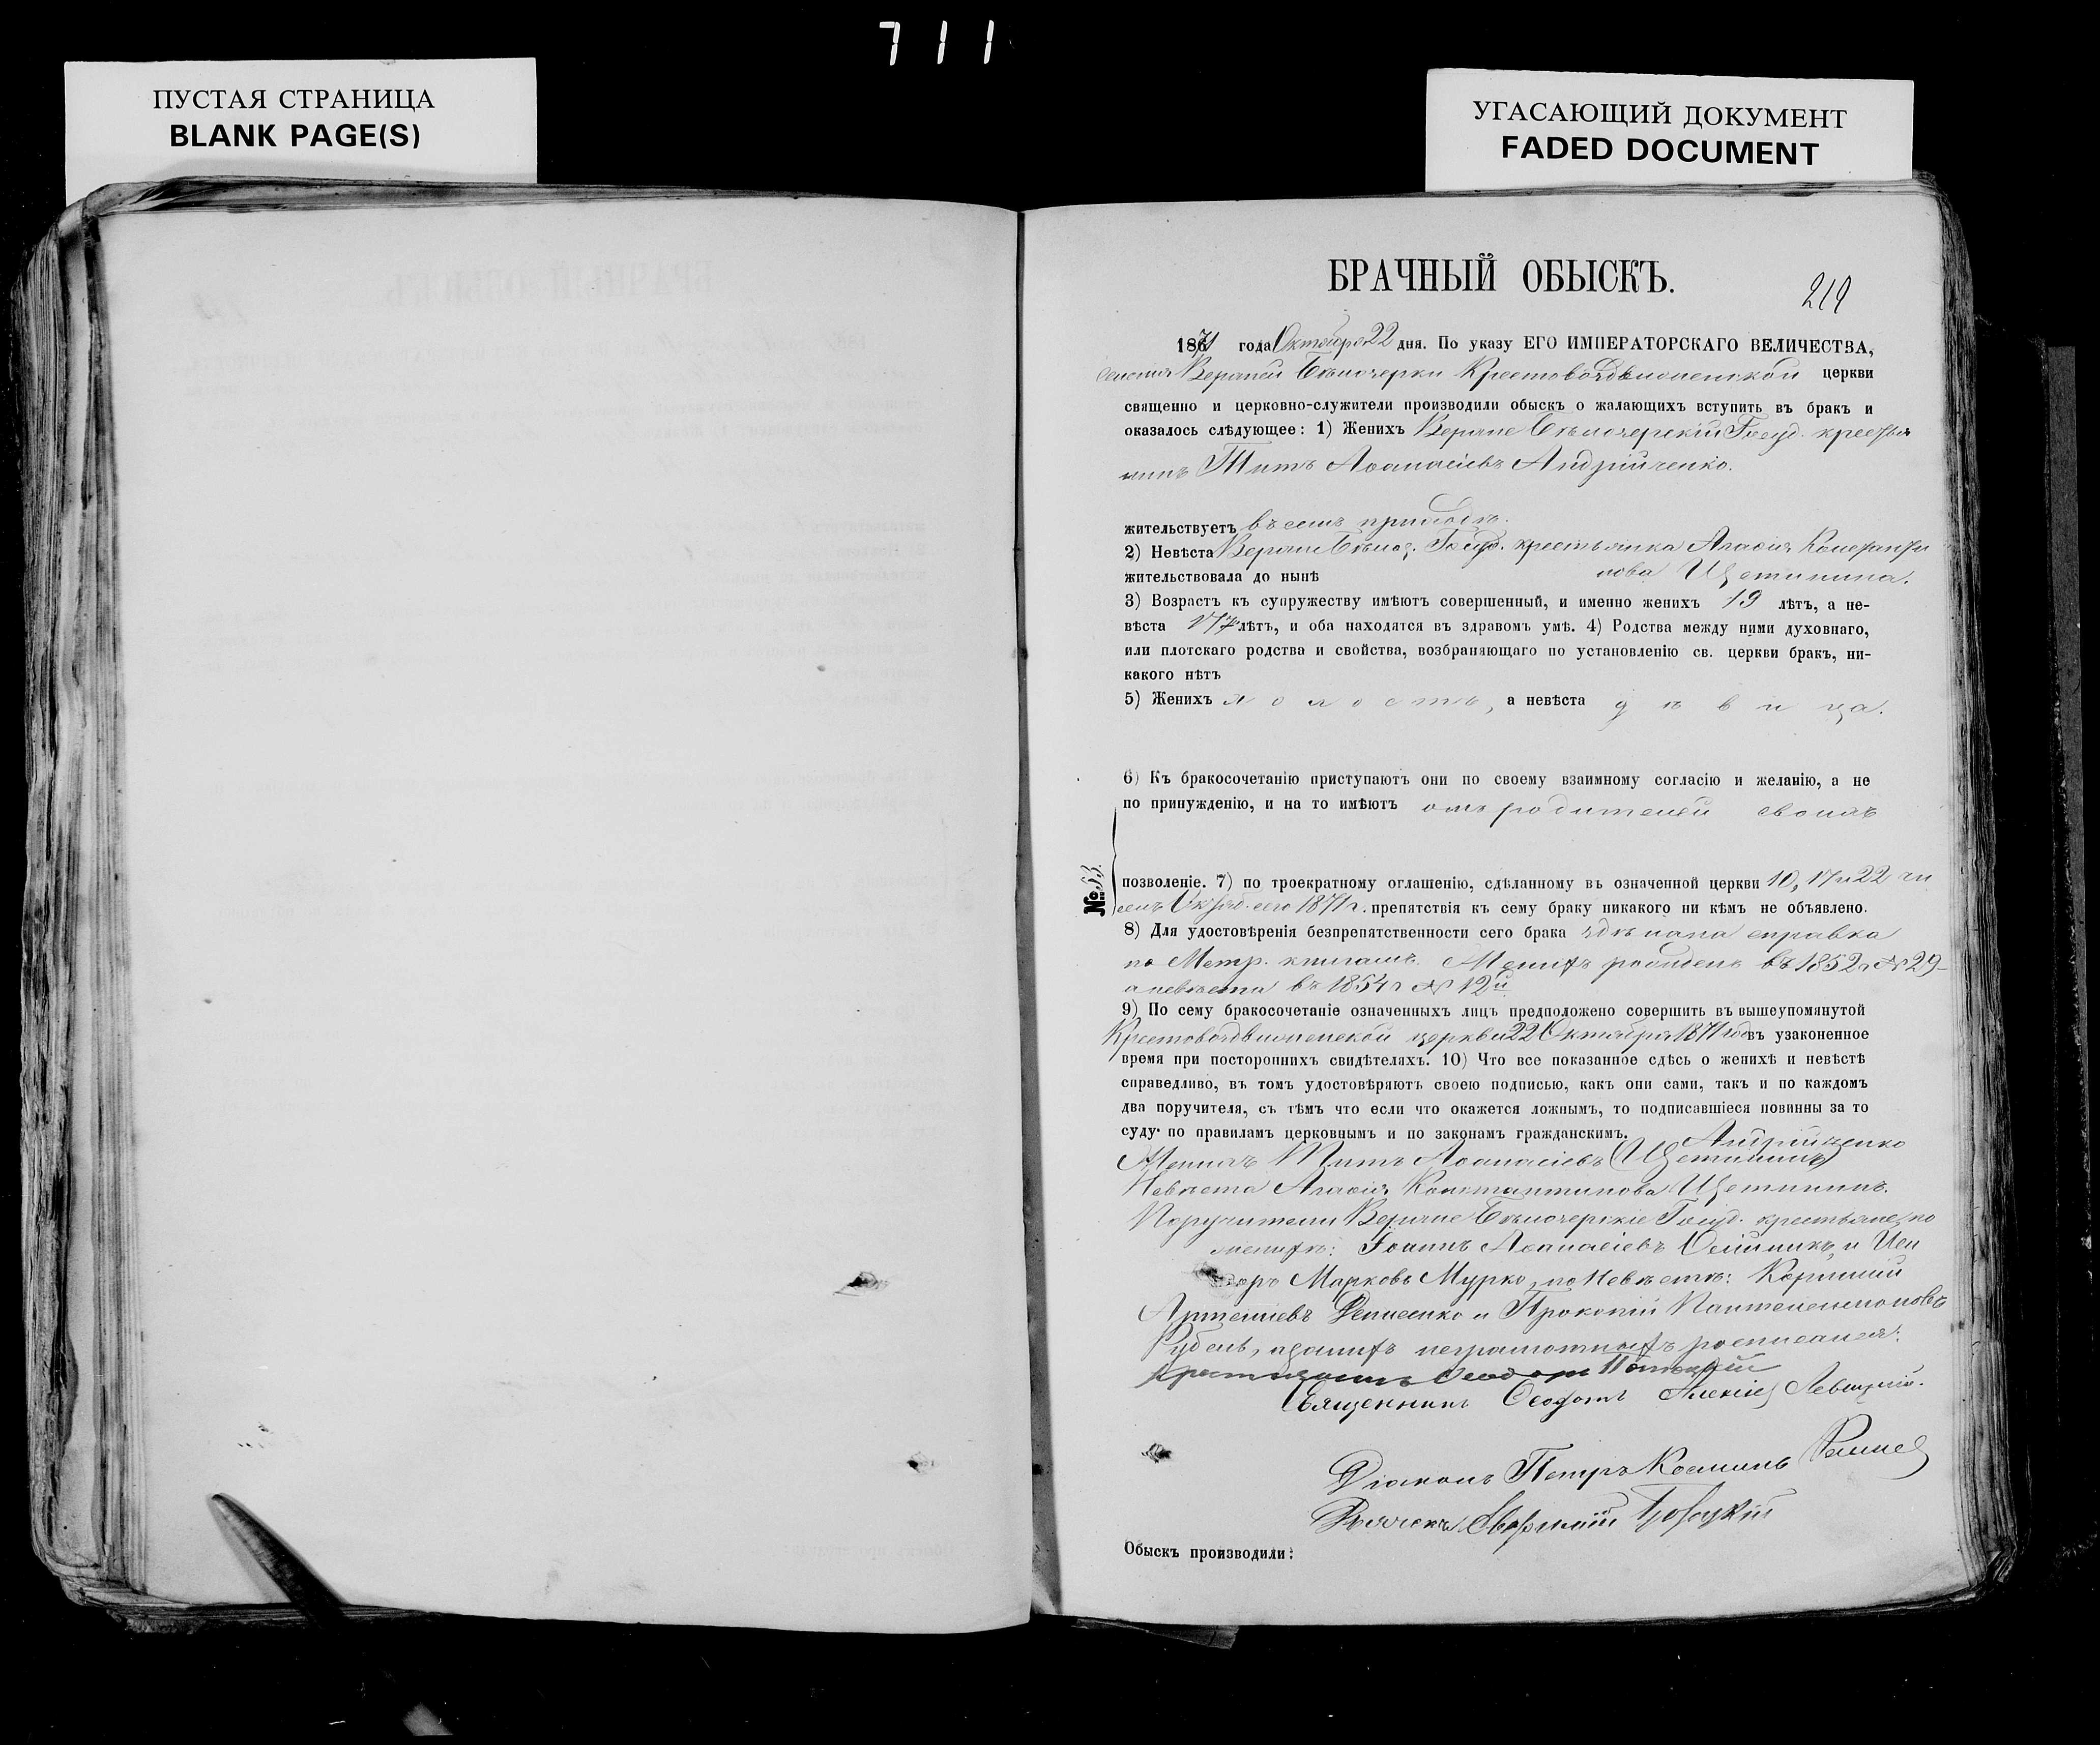 711
ПУСТАЯ СТРАНИЦА
BLANK PAGE(S)
УГАСАЮЩИЙ ДОКУМЕНТ
FADED DOCUMENT
БРАЧНЫЙ ОБЫСКЪ.
219
1871 года Октября 22 дня. По указу ЕГО ИМПЕРАТОРСКАГО ВЕЛИЧЕСТВА,
селенія Верхней Бѣлозерки Крестовоздвиженской церкви
священно и церковно-служители производили обыскъ о жалающихъ вступить въ бракъ и
оказалось слѣдующее: 1) Женихъ Верхне Бѣлозерскій Госуд. крестья
нинъ Титъ Аѳанасіевъ Андрійченко.
жительствуетъ въ семъ приходѣ.
2) Невѣста Верхне Бѣлоз. Госуд. крестьянка Агаѳія Константи
жительствовала до нынѣ нова Щетинина.
3) Возрастъ къ супружеству имѣютъ совершенный, и именно женихъ 19 лѣтъ, а не-
вѣста 17 лѣтъ, и оба находятся въ здравомъ умѣ. 4) Родства между ними духовнаго,
или плотскаго родства и свойства, возбраняющаго по установленію св. церкви бракъ, ни-
какого нѣтъ
5) Женихъ холостъ, а невѣста дѣвица.
6) Къ бракосочетанію приступаютъ они по своему взаимному согласію и желанію, а не
по принужденію, и на то имѣютъ отъ родителей своихъ
№ 53.
позволеніе. 7) по троекратному оглашенію, сдѣланному въ означенной церкви 10, 17 и 22 чи
селъ Октяб. сего 1871 г. препятствія къ сему браку никакого ни кѣмъ не объявлено.
8) Для удостовѣренія безпрепятственности сего брака здѣлана справка
по Метр. книгамъ. Женихъ рожденъ въ 1852 г № 29
а невѣста въ 1854 г № 12й
9) По сему бракосочетаніе означенныхъ лицъ предположено совершить въ вышеупомянутой
Крестовоздвиженской церкви 22 Октября 1871 года въ узаконенное
время при постороннихъ свидѣтеляхъ. 10) Что все показанное сдѣсь о женихѣ и невѣстѣ
справедливо, въ томъ удостовѣряютъ своею подписью, какъ они сами, такъ и по каждомъ
два поручителя, съ тѣмъ что если что окажется ложнымъ, то подписавшіеся повинны за то
суду по правиламъ церковнымъ и по законамъ гражданскимъ.
Андрійченко
Женихъ Титъ Аѳанасіевъ (Щетининъ)
Невѣста Агаѳія Константинова Щетинина.
Поручители Верхне Бѣлозерскіе Госуд. крестьяне, по
женихѣ: Іоаннъ Аѳанасіевъ Олійникъ, и Иси
доръ Марковъ Мурко, по Невѣстѣ: Корнилій
Артемиевъ Денисенко и Прокопій Пантелеимоновъ
Рубель, а за нихъ неграмотныхъ росписался:
Крестьянинъ Ѳеодоръ
Священникъ Ѳеодотъ Алексіе Левицкій.
Діаконъ Петръ Косминъ
Дьячекъ
Обыскъ производили: